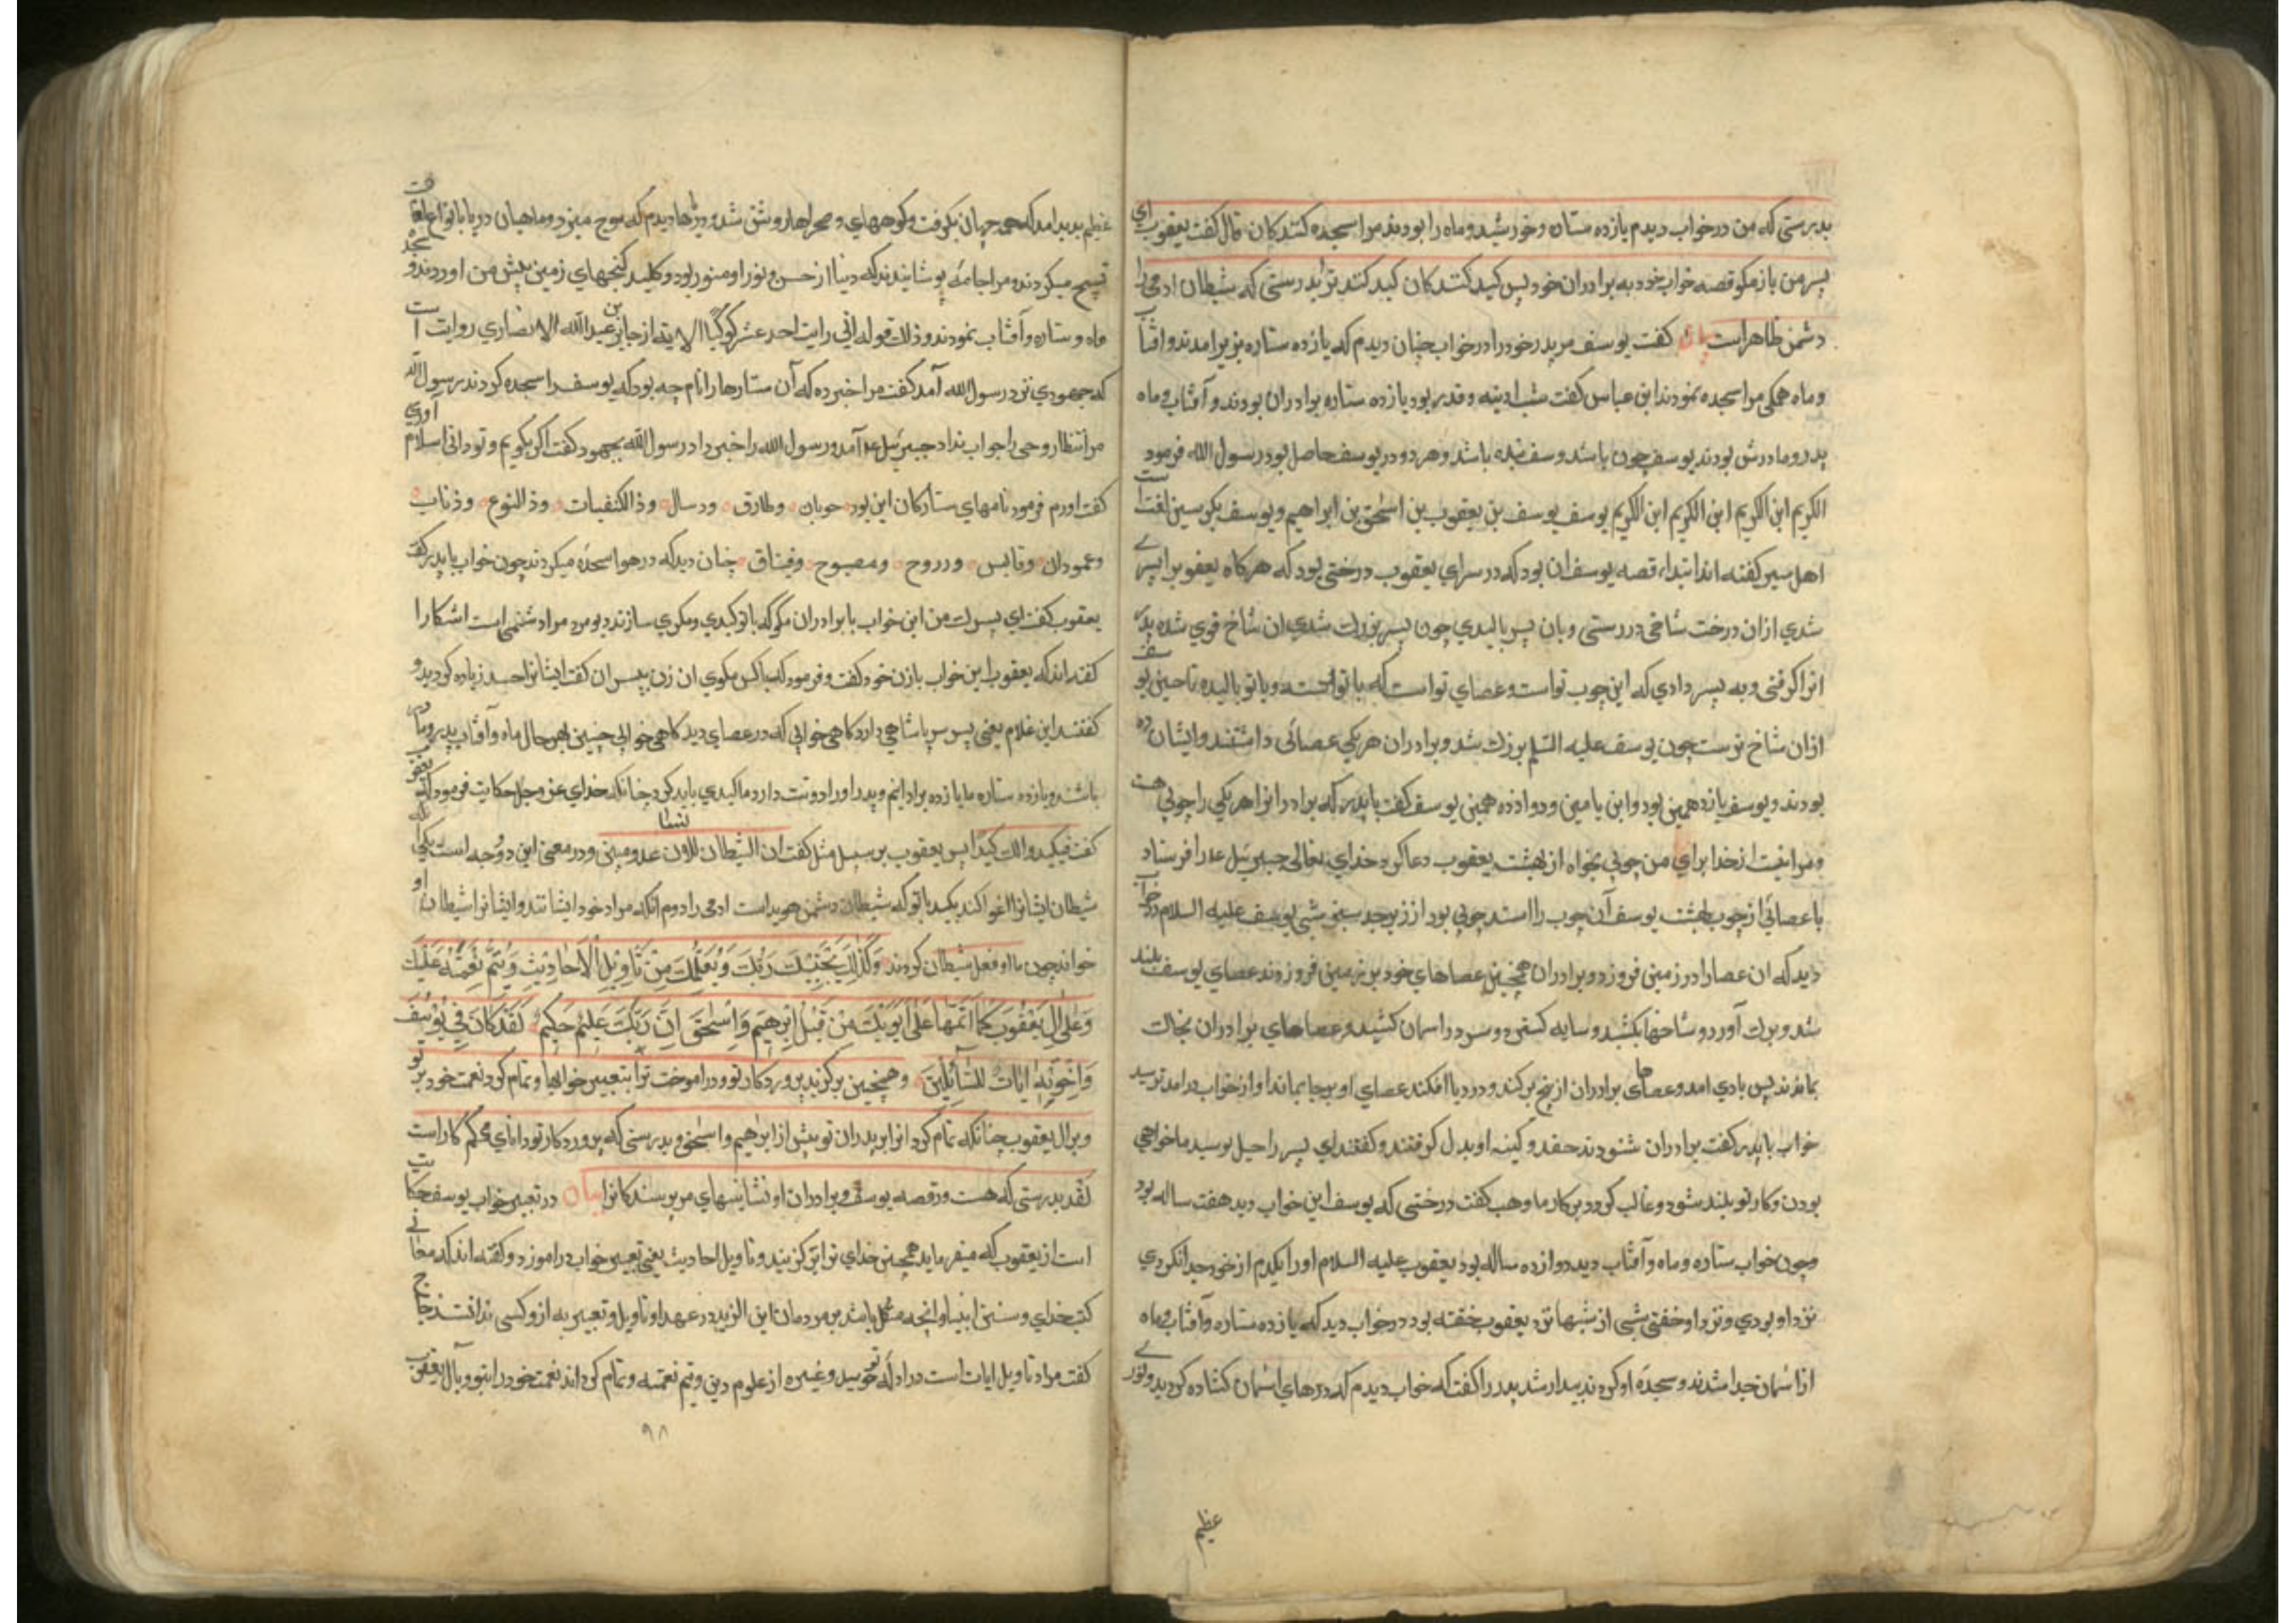 بدرستی که من در خواب دیدم یازده ستاره وخورشید وماه را بودند مرا سجده کنندکان قال کفت یعقوب ای
پسر من باز مکو قصه خواب خود به برادران خود پس کید کنند کان کید کنند ترا بدرستی که شیطان ادمی را
دشمن ظاهر است کفت یوسف مر پدر خود را در خواب چنان دیدم که یازده ستاره بزیر امدند وافتاب
وماه همکی مرا سجده نمودند ابن عباس کفت شب ادینه وقدر بود یازده ستاره برادران بودند وآفتاب وماه
پدر ومادرش بودند یوسف چون باشد وسف بنده باشد وهر دو در یوسف حاصل بود رسول الله فرمود
الکریم ابن الکریم ابن الکریم ابن الکریم یوسف یوسف بن یعقوب بن اسحق بن ابراهیم ویوسف بکسر سین لغت است
اهل سیر کفته اند ابتداء قصه یوسف ان بود که در سرای یعقوب درختی بود که هر کاه یعقوب را پسری
شدی از ان درخت شاخی در رستی وبان پسر بالیدی چون پسر بزرک شدی ان شاخ قوی شده بدی
انرا کرفتی وبه پسر دادی که این چوب تو است وعصای تو است که با تو رسته وبا تو بالیده تا حین یوسف
ازان شاخ نرست چون یوسف علیه السلم بزرک شد وبرادران هر یکی عصائی داشتند وایشان ده
بودند ویوسف یازدهمین بود وابن یامین ودوازده همین یوسف کفت با پدر که برادرانرا هر یکی را چوبی هست
ومرا نیست از خدا برای من چوبی بخواه از بهشت یعقوب دعا کرد خدای تعالی جبرییل عه را فرستاد
با عصائی از چوب بهشت یوسف آن چوب را استد چوبی بود از زبرجد سبز شبی یوسف علیه السلام در خواب
دید که ان عصا را در زمین فرو زد وبرادران همچنین عصاهای خود بر زمین فرو زدند عصای یوسف بلند
شد وبرک آورد وشاخها بکشید وسایه کسترد وسر در اسمان کشید وعصاهای برادران بحالت
بماندند پس بادی امد وعصاهای برادران از بیخ برکند ودر دریا افکند عصای او برجا بماند او از خواب در امد ترسید
خواب با پدر کفت برادران شنودند حقد وکینه او بدل کرفتند وکفتند ای پسر راحیل بو سید ما خواهی
بودن وکار تو بلند شود وغالب کردد بر کار ما وهب کفت درختی که یوسف این خواب دید هفت ساله بود
وچون خواب ستاره وماه وآفتاب دید دوازده ساله بود یعقوب علیه السلام او را یکدم از خود جدا نکردی
نزد او بودی ونزد او خفتی شبی از شبها نزد یعقوب خفته بود در خواب دید که یازده ستاره وآفتاب وماه
از اسمان جدا شدند وسجده او کردند بیدار شد پدر را کفت که خواب دیدم که درهای اسمان کشاده کردید ونوری
عظیم
عظیم پدید امد که همه جهان بکرفت وکوههای وصحراها روشن شد ودریاها دیدم که موج میزد وماهیان دریا بانواع لغات
تسبیح میکردند ومرا جامه پوشانیدند که دنیا از حسن ونور او منور بود وکلید کنجهای زمین پیش من اوردند وسجده
ماه وستاره وآفتاب نمودند وذلک قوله انی رایت احد عشر کوکبا الایة از جابر بن عبد الله الانصاری روایت است
که جهودی نزد رسول الله آمد کفت مرا خبر ده که آن ستارها را نام چه بود که یوسف را سجده کردند رسول الله
مر انتظار وحی را جواب نداد جبرییل عه آمد ورسول الله را خبر داد رسول الله بجهود کفت اکر بکویم وتو دانی اسلام اوری
کفت اورم فرمود نامهای ستارکان این بود حوبان وطارق ودسال وذالکنفیات وذ النوع وذناب
وعمودان وقابس ودروح ومصبوح وفیناق چنان دید که در هوا سجده میکردند چون خواب با پدر کفت
یعقوب کفت ای پسرک من این خواب با برادران مکو که با تو کیدی ومکری سازند دیو مرد مرا دشمنی است اشکارا
کفته اند که یعقوب این خواب با زن خود کفت وفرمود که با کس مکوی ان زن بپسران کفت ایشانرا حسد زیاده کردید و
کفتند این غلام یعنی پسر سر پاشاهی دارد کاهی خوابی که در عصای دید کاهی خوابی چنین بهر حال ماه وآفتاب پدر ومادر
باشد ویازده ستاره ما یازده برادرانیم وپدر او را دوست دارد ما کیدی باید کرد چنانکه خدای عز وجل حکایت فرمود که یعقوب
کفت فیکیدوا لک کیدا پس یعقوب بر سبیل مثل کفت ان الشیطان للانسان عدو مبین ودر معنی این دو وجه است یکی آنکه
شیطان ایشانرا اغوا کند بکید با تو که شیطان دشمن هویداست ادمی را دوم انکه مراد خود ایشانند وایشانرا شیطان او
خواند چون با او فعل شیطان کردند وَكَذٰلِكَ يَجْتَبِيكَ رَبُّكَ وَيُعَلِّمُكَ مِنْ تَأْوِيلِ الْأَحَادِيثِ وَيُتِمُّ نِعْمَتَهُ عَلَيْكَ
وَعَلٰى اٰلِ يَعْقُوبَ كَمَا اَتَمَّهَا عَلٰى اَبَوَيْكَ مِنْ قَبْلُ اِبْرٰهِيمَ وَاِسْحٰقَ اِنَّ رَبَّكَ عَلِيمٌ حَكِيمٌ لَقَدْ كَانَ فِي يُوسُفَ
وَاِخْوَتِهِ اٰيَاتٌ لِلسَّائِلِينَ وهمچنین برکزیند پروردکار تو ودر اموخت ترا بتعبیر خوابها وتمام کرد نعمت خود بر تو
وبرال یعقوب چنانکه تمام کرد انرا بر پدران تو پیش از ابرهیم واسحق وبدرستی که پروردکار تو دانای محکم کار است
لقد بدرستی که هست در قصه یوسف وبرادران او نشانیهای مر پرسندکانرا بیان در تعبیر خواب یوسف حکایت
است از یعقوب که میفرماید همچنین خدای ترا برکزیند وتاویل احادیث یعنی تعبیر خواب در اموزد وکفته اند که معانی
کتب خدای وسنن انبیا وانچه مشکل باشد بر مردمان ابن الزید در عهد او تاویل وتعبیر به از و کسی ندانست زجاج
کفت مراد تاویل ایات است در ادله توحید وغیره از علوم دین ویتم نعمته وتمام کرداند نعمت خود را بتو وبال یعقوب
۹۸